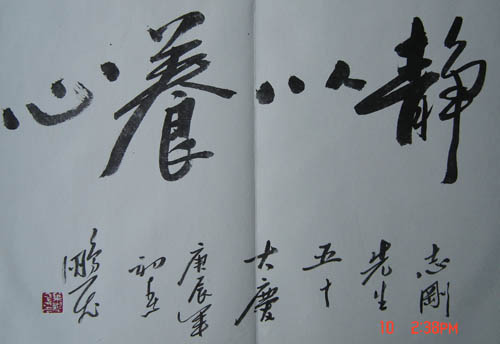 静以養心
志剛
先生
五十
大慶
庚辰年
初
10 2:38PM